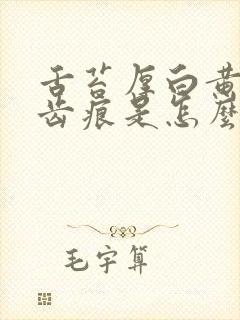 舌苔厚白黄
齿痕是怎麼
毛宇算